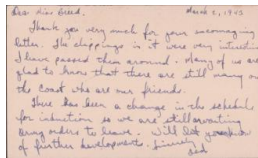 Dear Miss Breed. March 2, 1943
Thank you very much for your encouraging
letter. The clippings in it were very interesting
I have passed them around. Many of us are
glad to know that there are still many on
the coast who are our friends.
There has been a change in the schedule
for induction so we are still awaiting
our orders to leave. Will let you know
of further developments. Sincerely